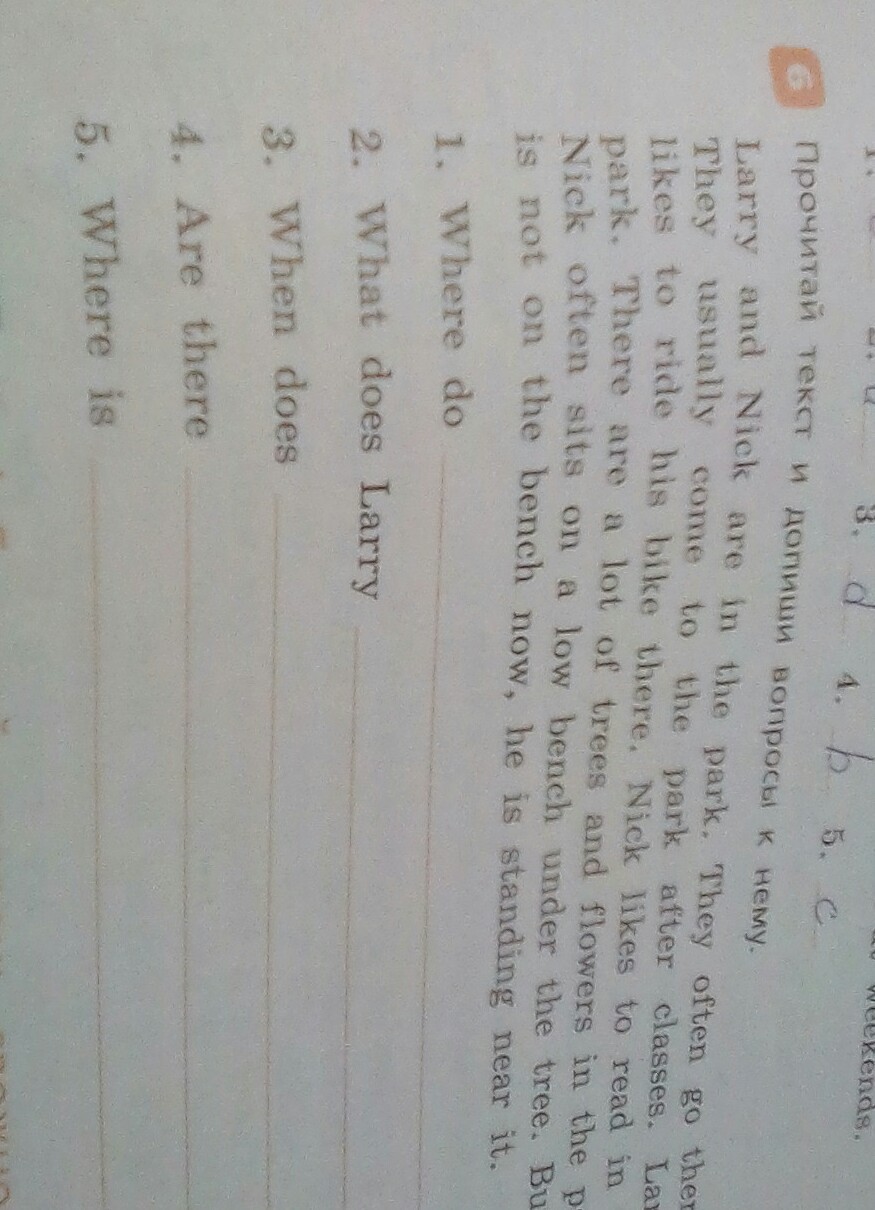 3. d 4. b 5. c
weekends.
6 Прочитай текст и допиши вопросы к нему.
Larry and Nick are in the park. They often go ther
They usually come to the park after classes. Lar
likes to ride his bike there. Nick likes to read in
park. There are a lot of trees and flowers in the p
Nick often sits on a low bench under the tree. Bu
is not on the bench now, he is standing near it.
1. Where do
2. What does Larry
3. When does
4. Are there
5. Where is